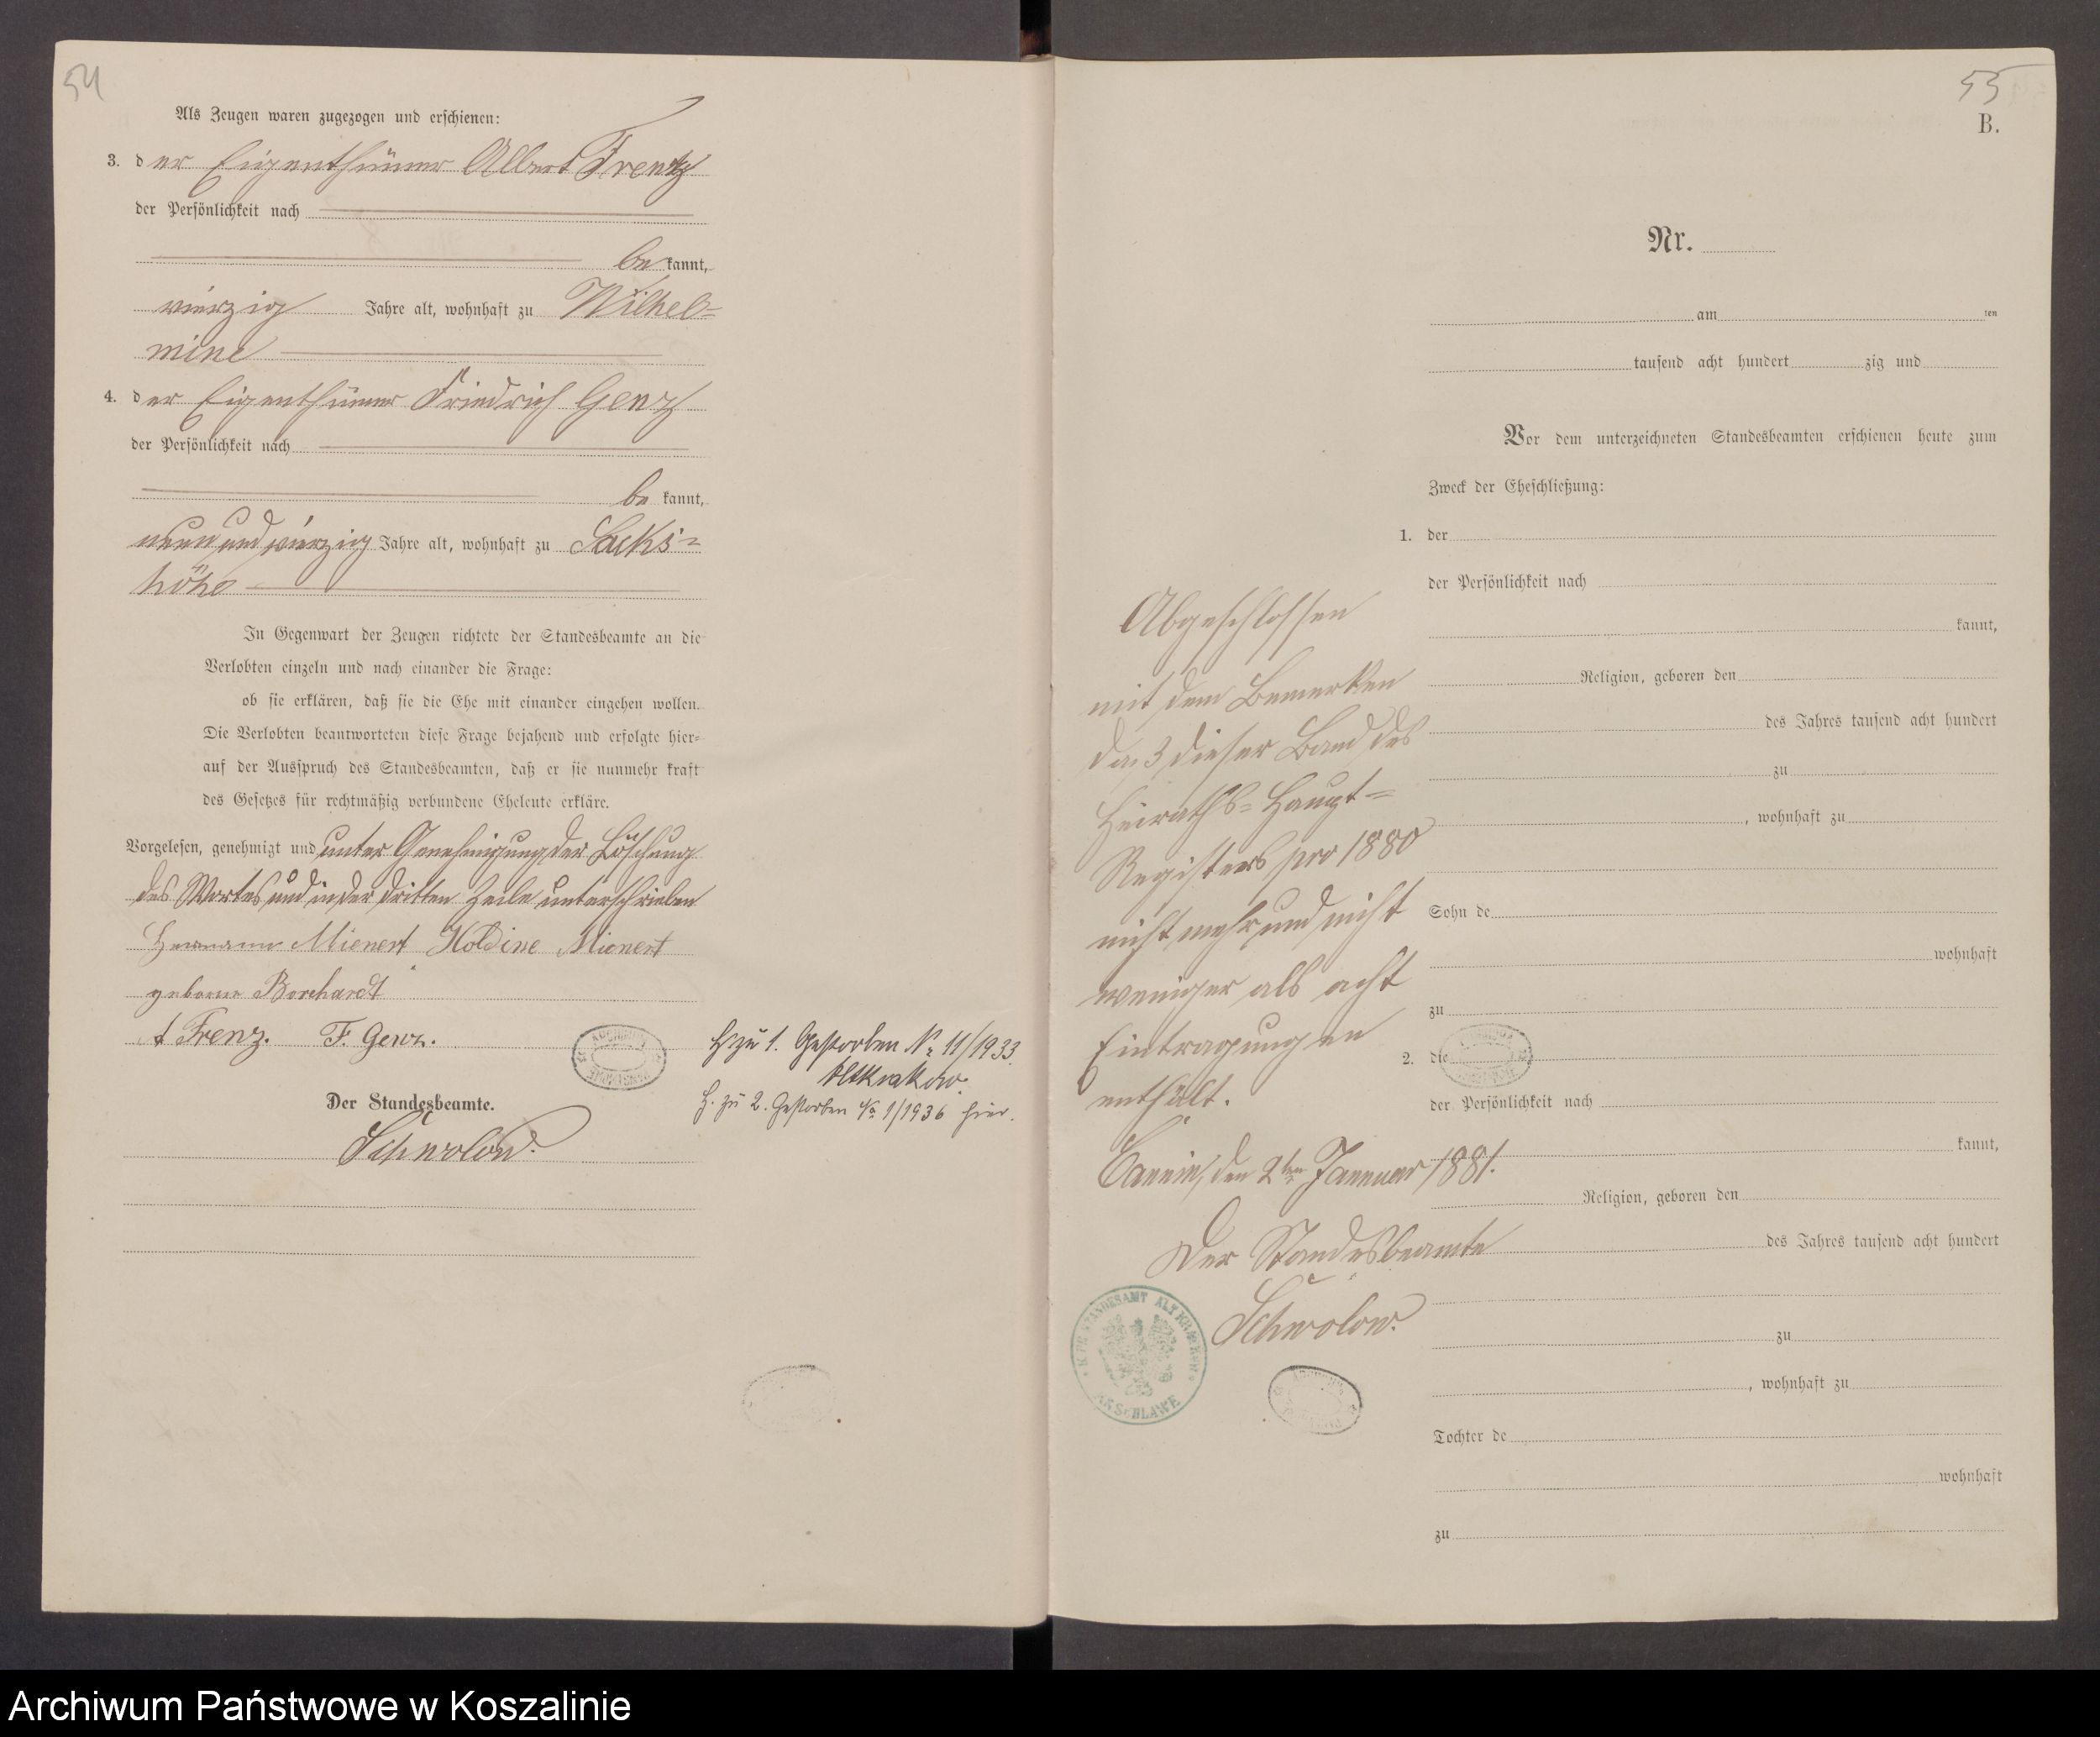 54
Als Zeugen waren zugezogen und erschienen:
3. der Eigenthümer Albert Frentz
der Persönlichkeit nach
be kannt,
vierzig Jahre alt, wohnhaft zu Wilhel=
mine
4. der Eigenthümer Friedrich Genz
der Persönlichkeit nach
be kannt,
neun und vierzig Jahre alt, wohnhaft zu Sacks=
höhe
In Gegenwart der Zeugen richtete der Standesbeamte an die
Verlobten einzeln und nach einander die Frage:
ob sie erklären, daß sie die Ehe mit einander eingehen wollen.
Die Verlobten beantworteten diese Frage bejahend und erfolgte hier=
auf der Ausspruch des Standesbeamten, daß er sie nunmehr kraft
des Gesetzes für rechtmäßig verbundene Eheleute erkläre.
Vorgelesen, genehmigt und unter Genehmigung der Löschung
des Wortes und in der dritten Zeile unterschrieben
Hermann Mienert Holdine Mienert
geborne Borchardt
A Frenz. F. Genz.
H. zu 1. Gestorben No 11/1933.
Altkrakow.
H. zu 2. Gestorben No 1/1936 hier.
Der Standesbeamte.
Schwolow.
55
B.
Nr.
am ten
tausend acht hundert zig und
Vor dem unterzeichneten Standesbeamten erschienen heute zum
Zweck der Eheschließung:
1. der
der Persönlichkeit nach
kannt,
Religion, geboren den
des Jahres tausend acht hundert
zu
, wohnhaft zu
Sohn de
wohnhaft
zu
2. die
der Persönlichkeit nach
kannt,
Religion, geboren den
des Jahres tausend acht hundert
zu
, wohnhaft zu
Tochter de
wohnhaft
zu
Abgeschlossen
mit dem Bemerken
daß dieser Band des
Heiraths=Haupt=
Registers pro 1880
nicht mehr und nicht
weniger als acht
Eintragungen
enthält.
Cannin, den 2ten Januar 1881.
Der Standesbeamte
Schwolow.
STANDESAMT ALT KRAKOW
KR. SCHLAWE
Archiwum Państwowe w Koszalinie